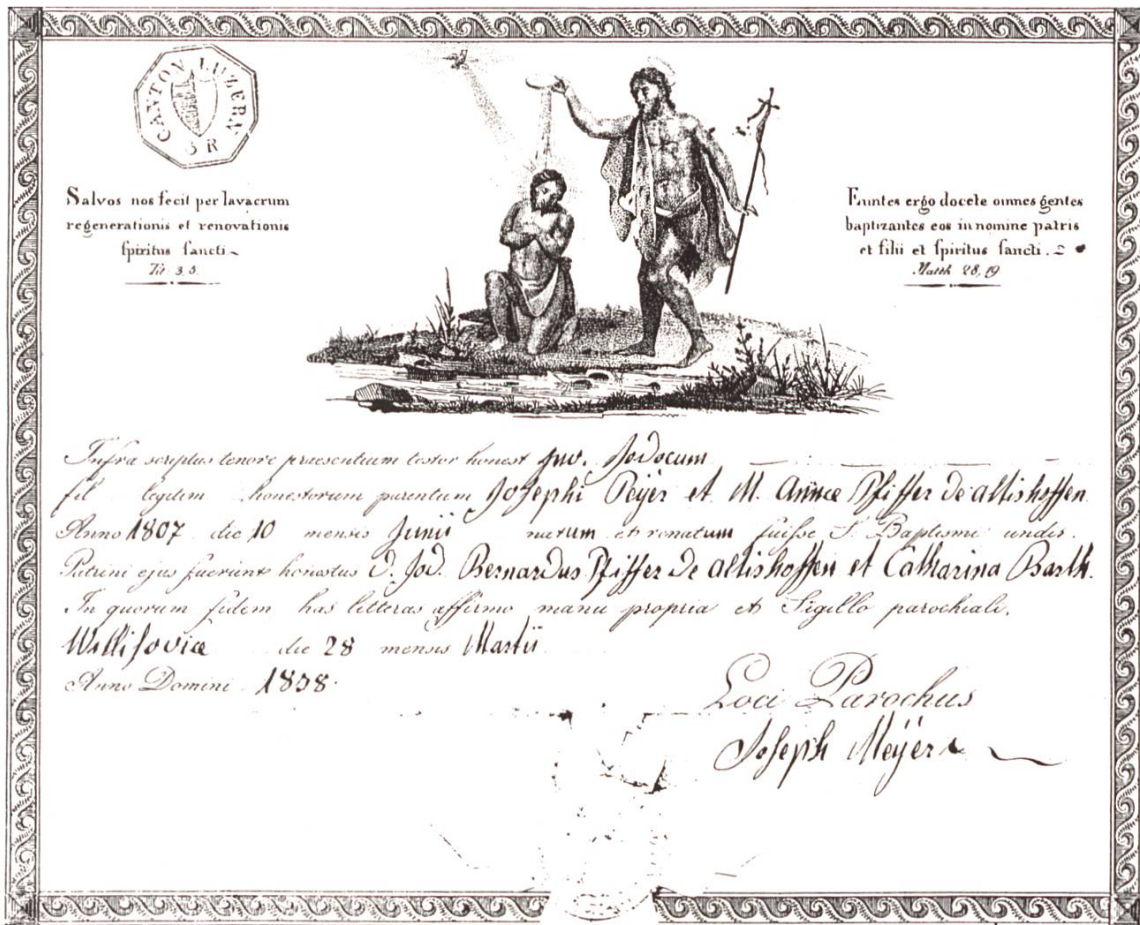 CANTON LUZERN
3 R
Salvos nos fecit per lavacrum
regenerationis et renovationis
spiritus sancti
Tit 3, 5.
Euntes ergo docete omnes gentes
baptizantes eos in nomine patris
et filii et spiritus sancti.
Matth 28, 19
Infra scriptus tenore praesentium testor honest Juv. Jodocum
fil legitim honestorum parentum Josephi Peÿer et M. Annæ Pfiffer De altishoffen
Anno 1807 die 10 mensis Junii natum et renatum fuisse S. Baptismi undis.
Patrini ejus fuerint honestus D. Jod. Bernardus Pfiffer De altishoffen et Catharina Barth.
In quorum fidem has litteras affirmo manu propria et Sigillo parochiali.
Willisoviæ die 28 mensis Martii
Anno Domini 1838.
Loci Parochus
Joseph Meÿer